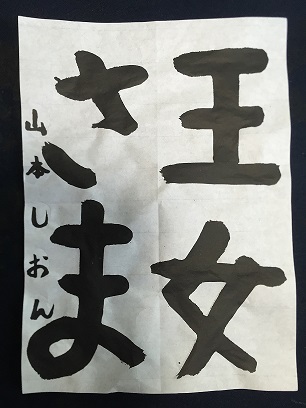 王女
さま
山本しおん